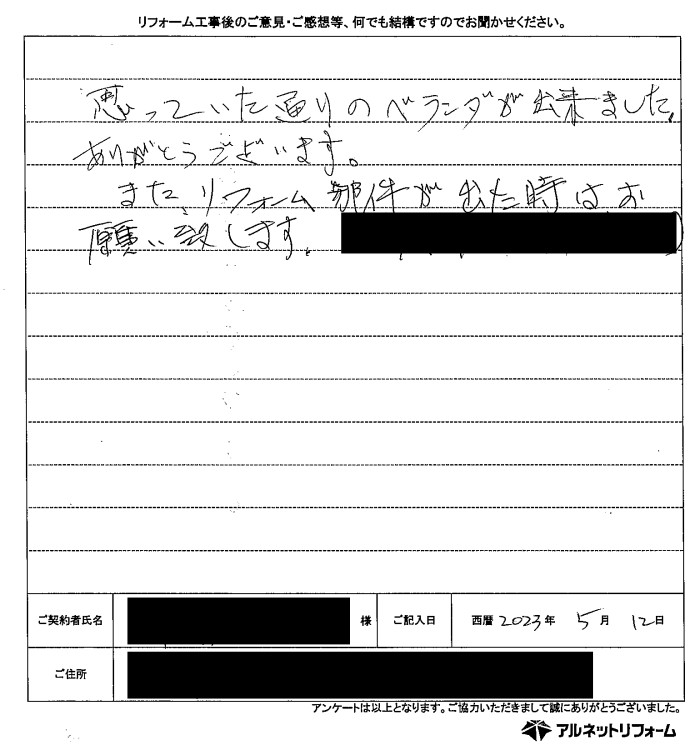 リフォーム工事後のご意見・ご感想等、何でも結構ですのでお聞かせください。
思っていた通りのベランダが出来ました。
ありがとうございます。
また、リフォーム 件が出た時はお
願い致します。
ご契約者氏名 様 ご記入日 西暦 2023年 5月 12日
ご住所
アンケートは以上となります。ご協力いただきまして誠にありがとうございました。
アルネットリフォーム